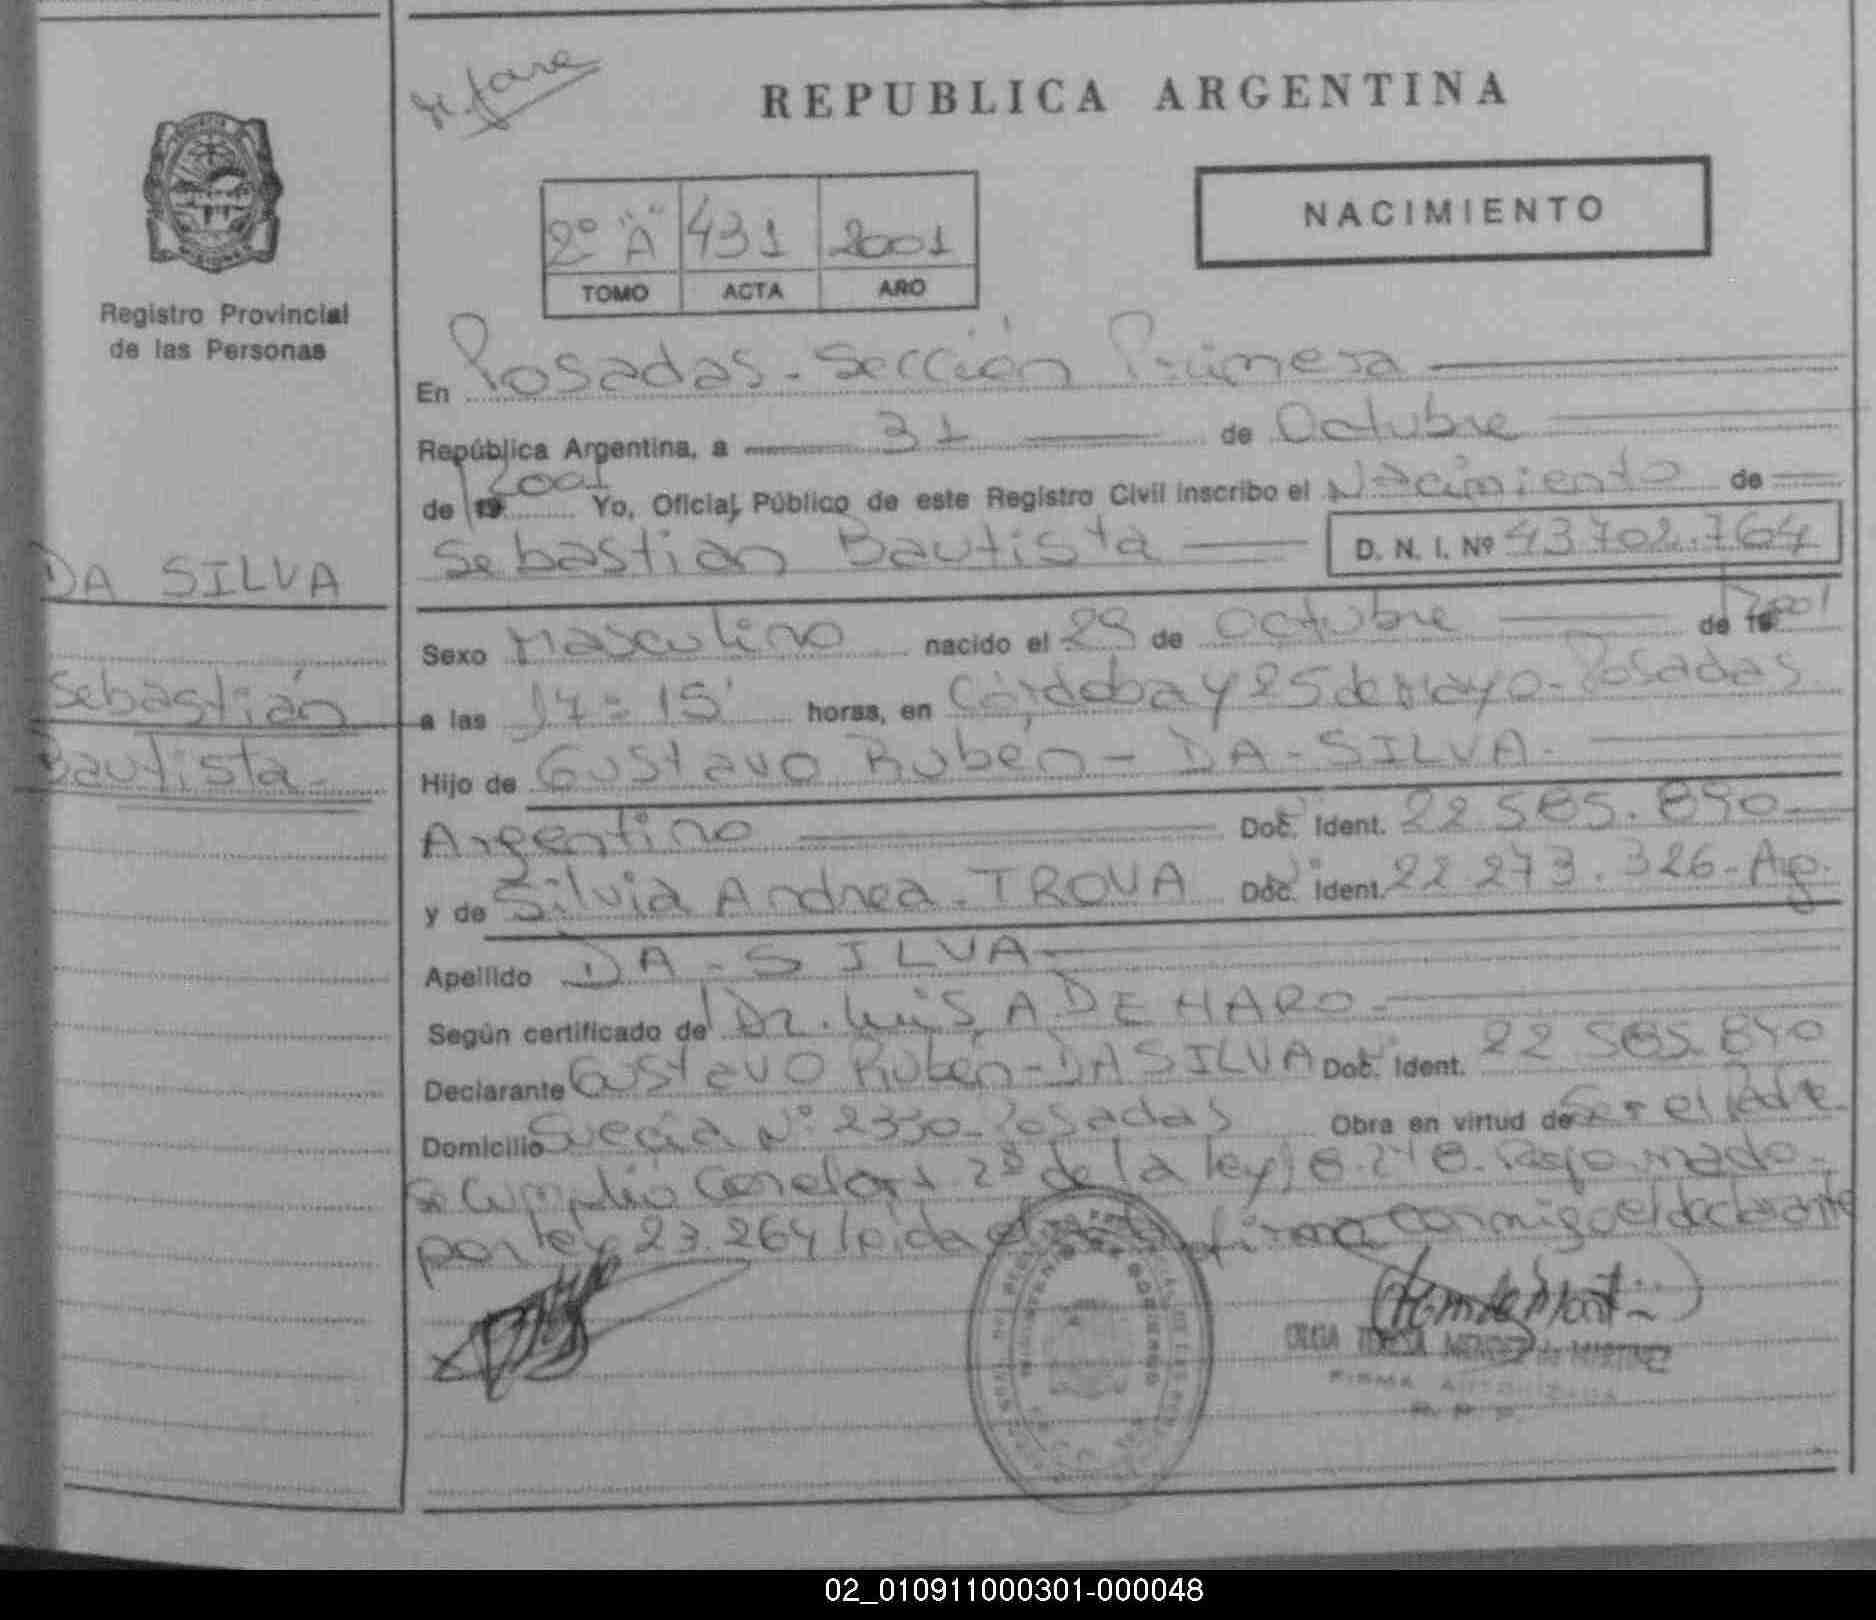 REPUBLICA ARGENTINA
2º "A" 431 2001
TOMO ACTA AÑO
NACIMIENTO
Registro Provincial
de las Personas
En Posadas - Sección Primera
República Argentina, a 31 de Octubre
de 2001 Yo, Oficial Público de este Registro Civil inscribo el Nacimiento de
Sebastian Bautista D. N. I. Nº 43702.764
DA SILVA
Sebastián
Bautista
Sexo Masculino nacido el 29 de Octubre de 2001
a las 17:15' horas, en Córdoba y 25 de Mayo - Posadas
Hijo de Gustavo Rubén - DA - SILVA
Argentino Doc. Ident. 22 585.890
y de Silvia Andrea - TROVA Doc. Ident. 22 273.326 - Ag.
Apellido DA - SILVA
Según certificado del Dr. Luis A. DE HARO
Declarante Gustavo Rubén - DA SILVA Doc. Ident. 22 585.890
Domicilio Suecia Nº 2330 - Posadas Obra en virtud de Ser el Padre
Se Cumplió Con el art 2º de la ley
por ley 23.264 leída el firma conmigo el declarante
OLGA TERESA MENDEZ de MARTINEZ
FIRMA AUTORIZADA
R. P. P.
02_010911000301-000048